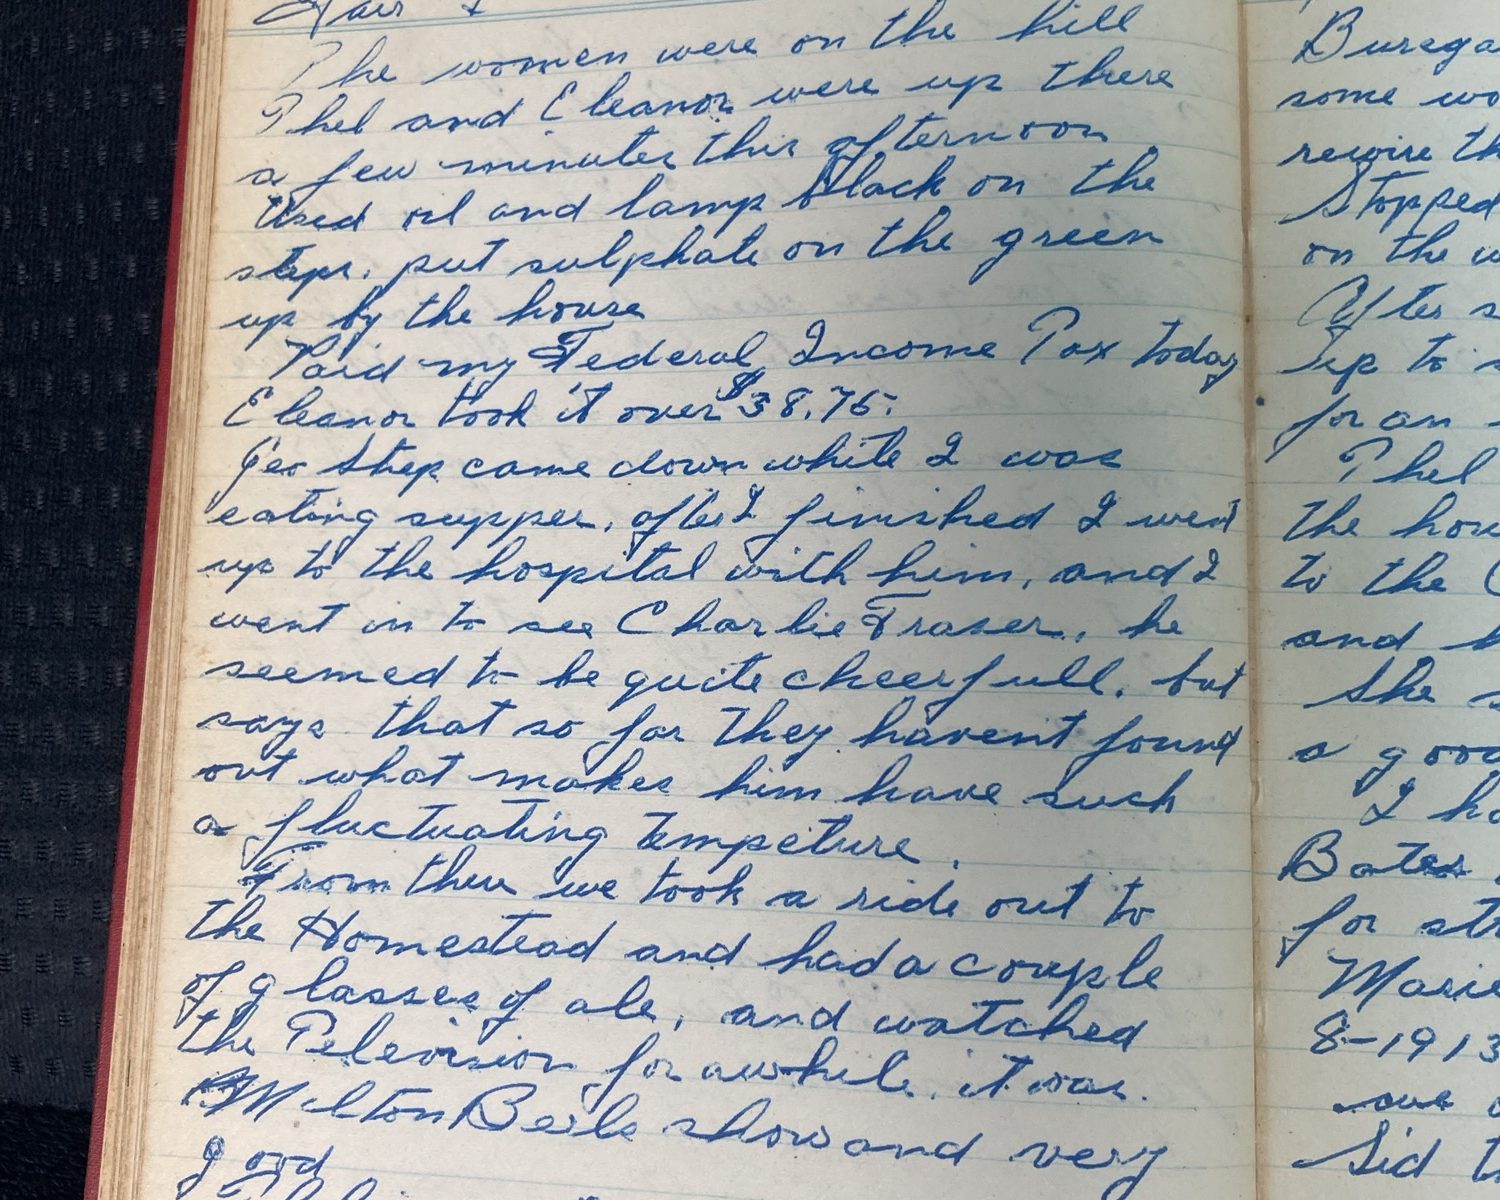 Fair
The women were on the hill
Phel and Eleanor were up there
a few minutes this afternoon
Used oil and lamp black on the
steps. put sulphate on the green
up by the house
Paid my Federal Income Tax today
Eleanor took it over $38.75.
Geo Shep came down while I was
eating supper, after I finished I went
up to the hospital with him, and I
went in to see Charlie Fraser, he
seemed to be quite cheerfull, but
says that so far they havent found
out what makes him have such
a fluctuating tempeture.
From there we took a ride out to
the Homestead and had a couple
of glasses of ale, and watched
the Television for awhile, it was
Milton Berle show and very
good
some wo
rewire th
Stopped
on the w
After s
up to
for an
Phel
the hou
to the
and
She
a good
I ha
Bates
for str
Marie
8-1913
Sid t